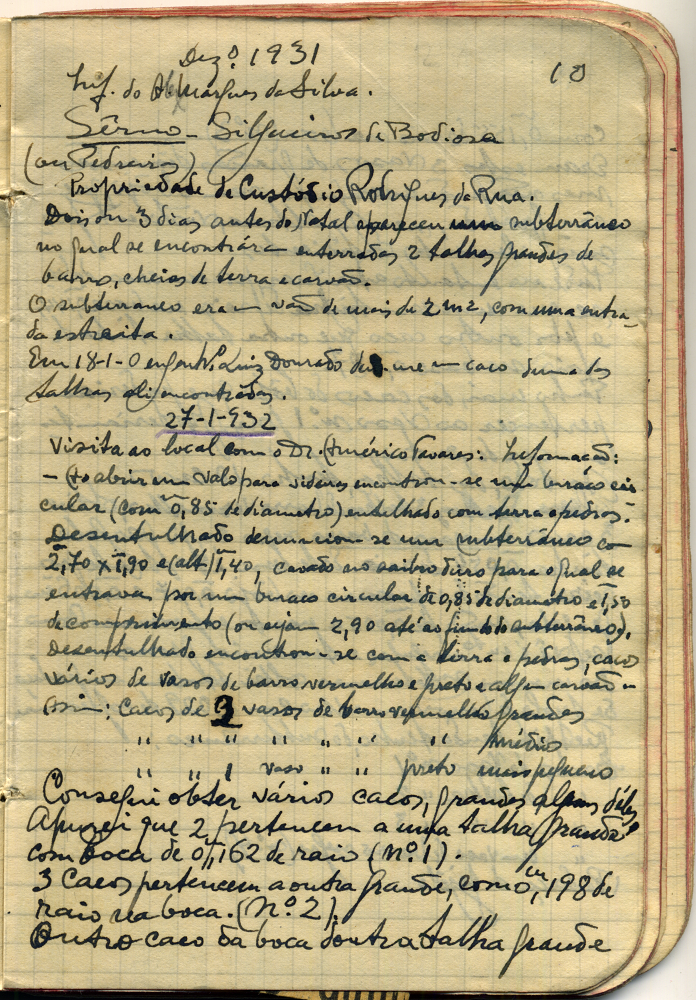 Dezº. 1931
10
Inf. do Ab. Marques da Silva.
Sêrno - Silgueiros de Bodiosa
(ou Pedreira)
Propriedade de Custódio Rodrigues da Rua.
Dois ou 3 dias antes do Natal apareceu um subterrâneo
no qual se encontrára enterradas 2 talhas grandes de
barro, cheias de terra e carvão.
O subterraneo era um vão de mais de 2 m2, com uma entra-
da estreita.
Em 18-1- O engenhº. Luiz Dourado deu-me um caco duma das
talhas ali encontradas.
27-1-932
Visita ao local com o Dr. Américo Tavares: Informação:
- Ao abrir um valo para videiras encontrou-se um buraco cir
cular (com 0,85 de diametro) entulhado com terra e pedras.
Desentulhado denunciou-se um subterrâneo com
2,70 x 1,90 e (alt) 1,40, cavado no saibro duro para o qual se
entrava por um buraco circular de 0,85 de diametro e 1,50
de comprimento (ou sejam 2,90 até ao fundo do subterrâneo).
Desentulhado encontrou-se com a terra e pedras, cacos
vários de vasos de barro vermelho e preto e algum carvão -
assim: Cacos de 3 vasos de barro vermelho grandes
" " " " " " " médios
" " 1 vaso " " preto mais pequeno
Consegui obter vários cacos, grandes alguns dêles
Apurei que 2 pertencem a uma talha grande
com boca de 0m,162 de raio (nº. 1).
3 cacos pertencem a outra grande, com 0m,198 de
raio na boca. (Nº. 2).
Outro caco da boca doutra talha grande